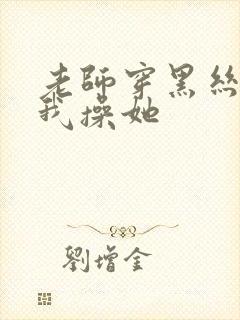 老師穿黑絲
我操她
劉增金